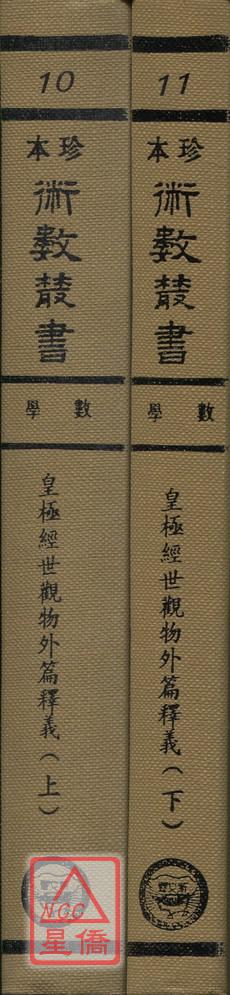 10
珍本
術數叢書
數學
皇極經世觀物外篇釋義(上)
NCC
星僑
11
珍本
術數叢書
數學
皇極經世觀物外篇釋義(下)